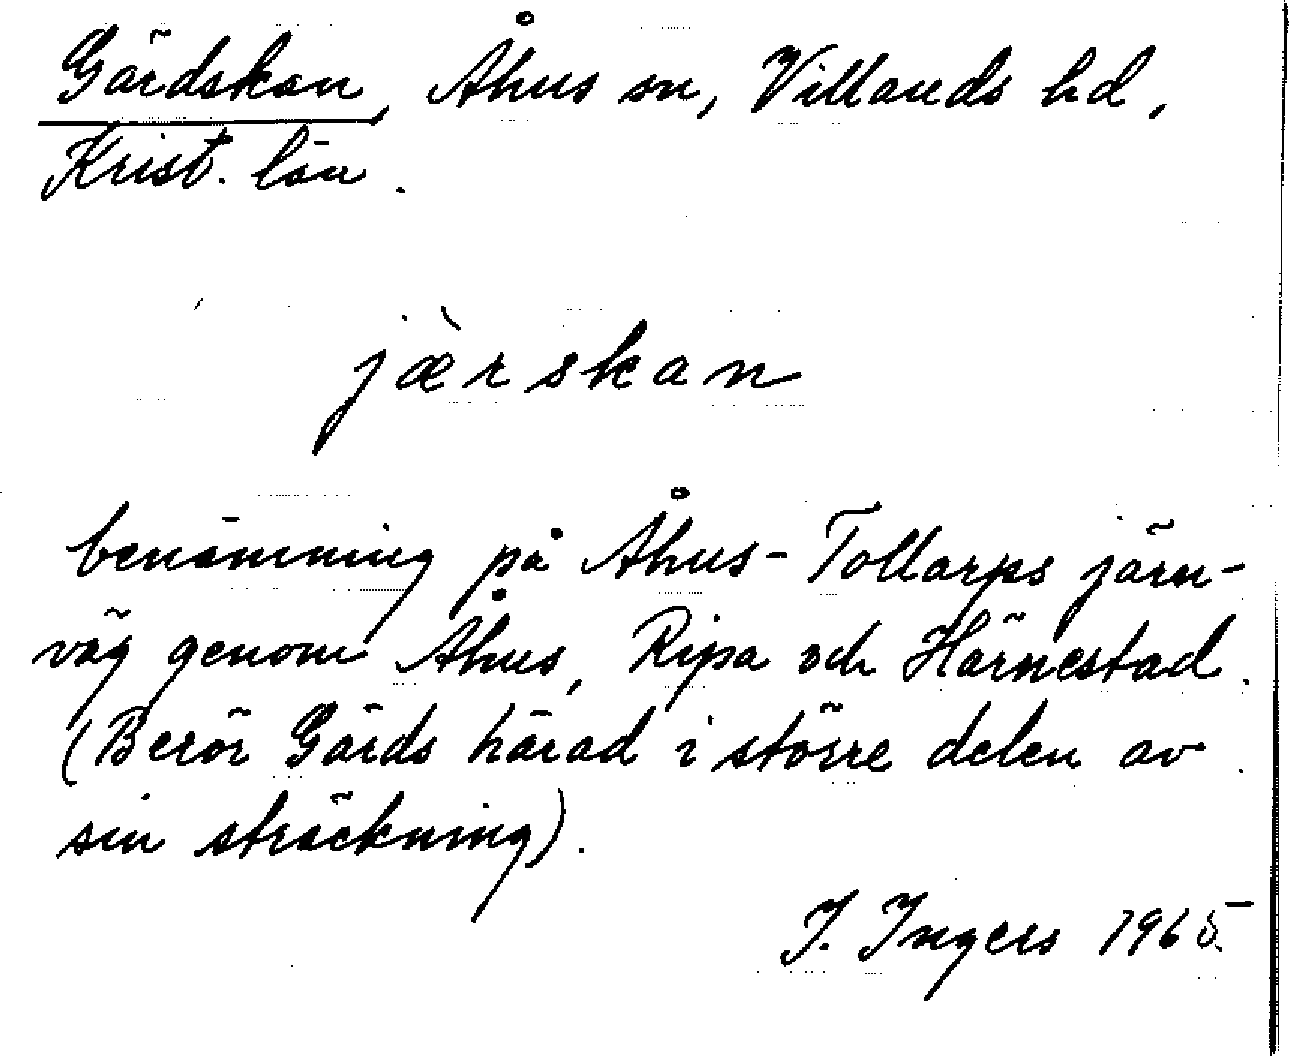 Gärdskan, Åhus sn, Villands hd,
Krist. län.
jæ̀rskan
benämning på Åhus-Tollarps järn-
väg genom Åhus, Ripa och Härnestad.
(Berör Gärds härad i större delen av
sin sträckning).
I. Ingers 1965.